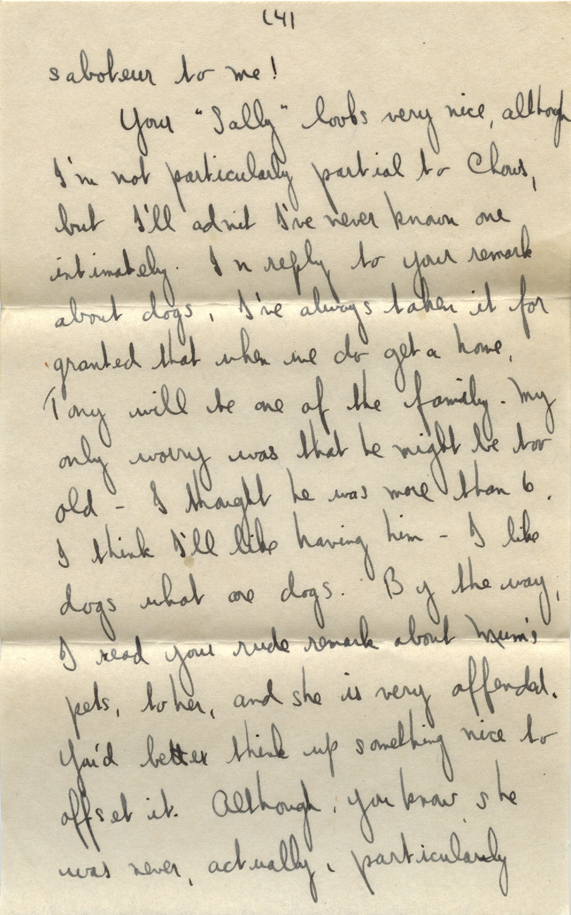 (4)
saboteur to me!
Your "Sally" looks very nice, although
I'm not particularly partial to Chows,
but I'll admit I've never known one
intimately. In reply to your remark
about dogs, I've always taken it for
granted that when we do get a home,
Tony will be one of the family. My
only worry was that he might be too
old - I thought he was more than 6.
I think I'll like having him - I like
dogs what are dogs. By the way,
I read your rude remark about Mum's
pets, to her, and she is very offended.
You'd better think up something nice to
offset it. Although, you know, she
was never, actually, particularly